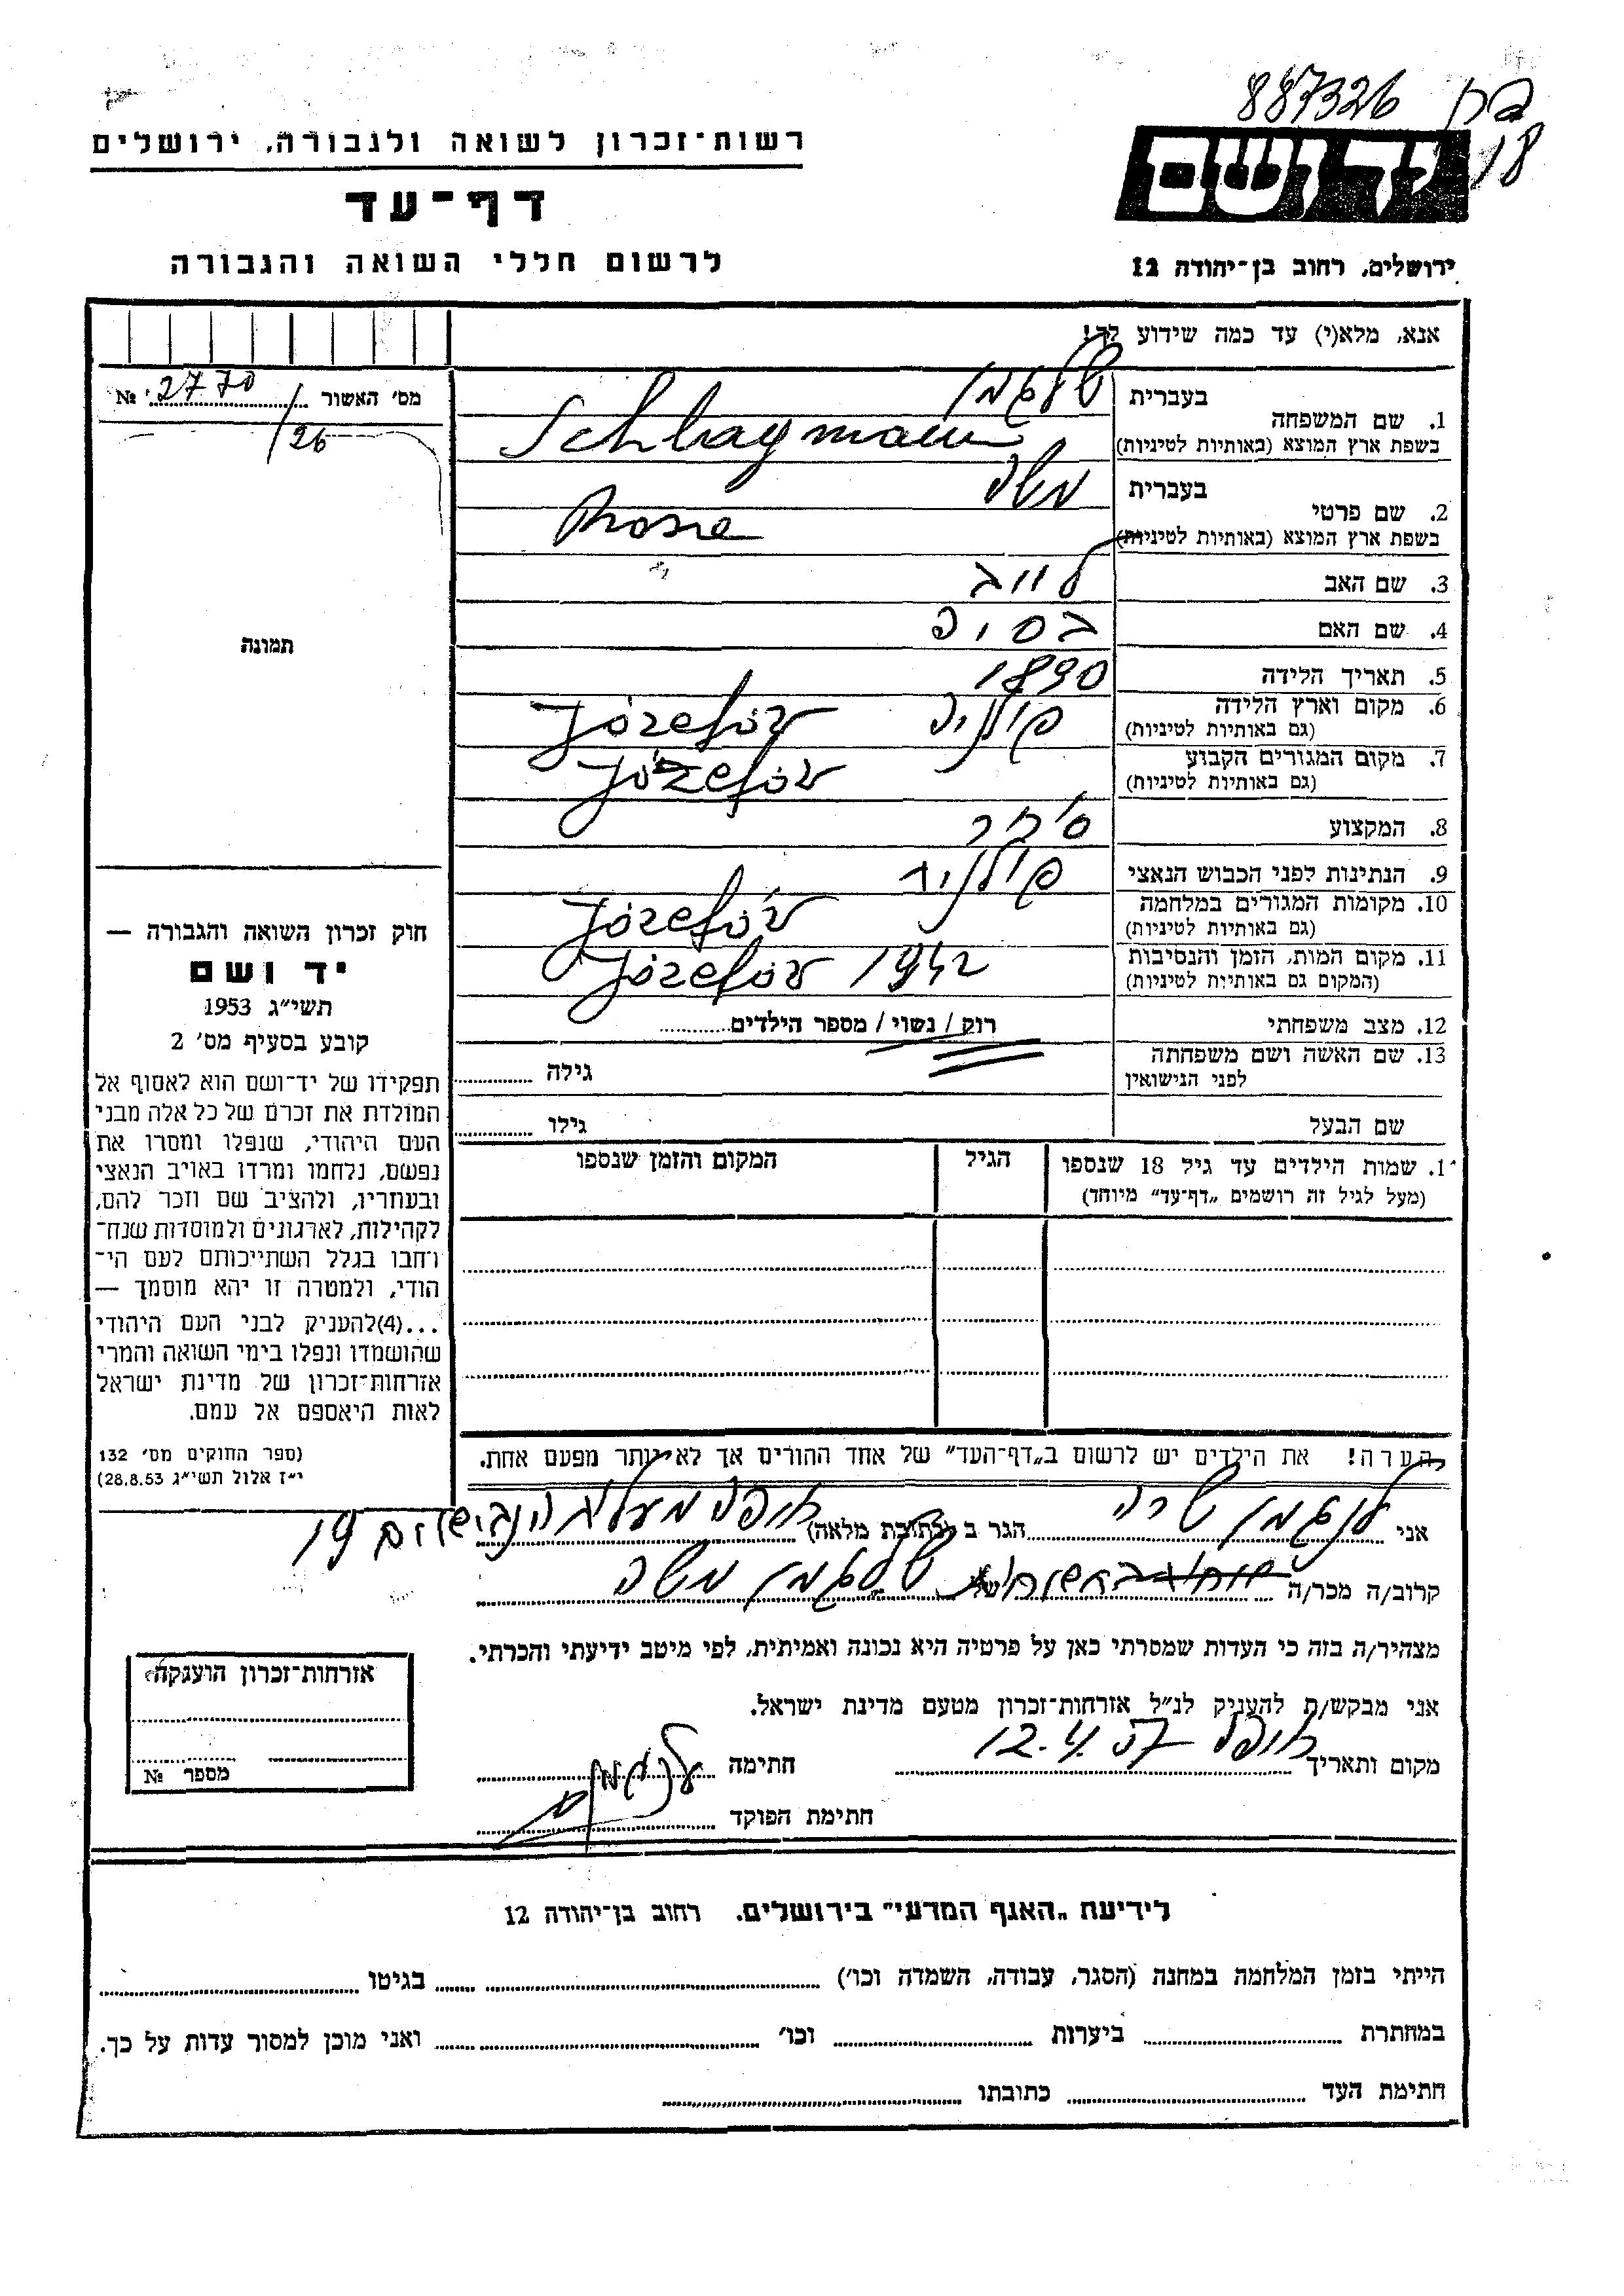 887326 בק
18
רשות-זכרון לשואה ולגבורה, ירושלים
דף-עד
לרשום חללי השואה והגבורה
יד ושם
ירושלים, רחוב בן-יהודה 12
אנא, מלא(י) עד כמה שידוע לך!
מס' האשור 2770 №
/26
תמונה
1. שם המשפחה
בעברית שלגמן
בשפת ארץ המוצא (באותיות לטיניות) Schlagman
2. שם פרטי
בעברית משה
בשפת ארץ המוצא (באותיות לטיניות)
3. שם האב
4. שם האם
5. תאריך הלידה 1890
6. מקום וארץ הלידה (גם באותיות לטיניות) פולניה Józefów
7. מקום המגורים הקבוע (גם באותיות לטיניות) Józefów
8. המקצוע
9. הנתינות לפני הכבוש הנאצי פולנית
10. מקומות המגורים במלחמה (גם באותיות לטיניות) Józefów
11. מקום המות, הזמן והנסיבות (המקום גם באותיות לטיניות) Józefów 1942
12. מצב משפחתי רוק / נשוי / מספר הילדים
13. שם האשה ושם משפחתה לפני הנישואין גילה
שם הבעל גילו
1. שמות הילדים עד גיל 18 שנספו
(מעל לגיל זה רושמים „דף-עד" מיוחד)
הגיל
המקום והזמן שנספו
חוק זכרון השואה והגבורה —
יד ושם
תשי"ג 1953
קובע בסעיף מס' 2
תפקידו של יד-ושם הוא לאסוף אל
המולדת את זכרם של כל אלה מבני
העם היהודי, שנפלו ומסרו את
נפשם, נלחמו ומרדו באויב הנאצי
ובעוזריו, ולהציב שם וזכר להם,
לקהילות, לארגונים ולמוסדות שנח-
רחבו בגלל השתייכותם לעם הי-
הודי, ולמטרה זו יהא מוסמך —
...(4)להעניק לבני העם היהודי
שהושמדו ונפלו בימי השואה והמרי
אזרחות-זכרון של מדינת ישראל
לאות היאספם אל עמם.
(ספר החוקים מס' 132
י"ז אלול תשי"ג 28.8.53)
הערה! את הילדים יש לרשום ב„דף-העד" של אחד ההורים אך לא יותר מפעם אחת.
אני שרה הגר ב (כתובת מלאה) חיפה 19
קרוב/ה מכר/ה של שלגמן משה
מצהיר/ה בזה כי העדות שמסרתי כאן על פרטיה היא נכונה ואמיתית, לפי מיטב ידיעתי והכרתי.
אני מבקש/ת להעניק לנ"ל אזרחות-זכרון מטעם מדינת ישראל.
מקום ותאריך חיפה 12.4.57 חתימה
חתימת הפוקד
אזרחות-זכרון הוענקה
מספר №
לידיעת „האגף המדעי" בירושלים, רחוב בן-יהודה 12
הייתי בזמן המלחמה במחנה (הסגר, עבודה, השמדה וכו') בגיטו
במחתרת ביערות וכו' ואני מוכן למסור עדות על כך.
חתימת העד כתובתו